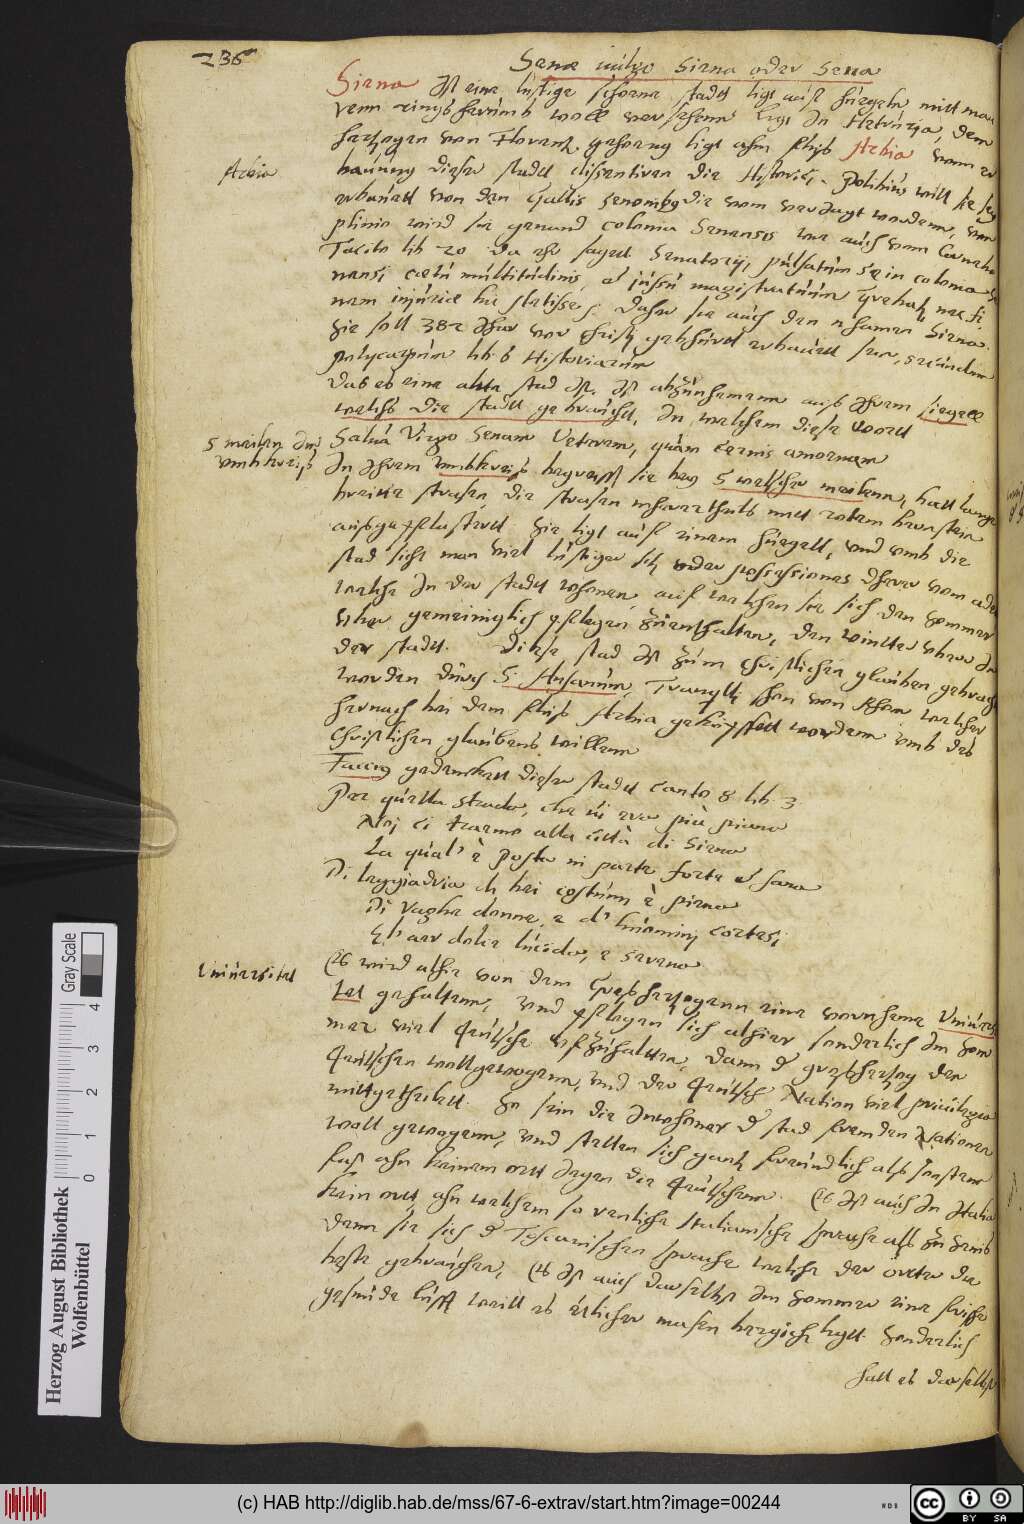 236
Senæ vulgo Siena oder Sena
Siena Ist eine lustige schoene stadt ligt auff hügeln mitt mau
renn ringsherumb woll versehenn ligt In Hetruria, dem
hertzogen von Florentz gehoerig ligt ahm fluß Arbia vonn er
Arbia
bauung dieser stadt dissentiren die Historici, Polibius will sie sey
erbauett von den Gallis Senonibus die vom verJagt wordenn, von
plinio wird sie genand colonia Senensis wie auch vom Cornelio
Tacito lib 20 Da ehr saget Senatorij, pulsatum se in colonia Se
nensi cœtu multitudinis, et jussu magistratuum
nem injuriæ hic stetisse, Daher sie auch den nhamen Siena
Sie soll 382 Jhar vor Christi gebhurt erbauett sein, secundum
polycarpum lib 6 Historiarum
Das es eine alte stad Ist, Ist abzunhemenn auß Ihrem siegell
welchs die stadt gebraucht, In welchem diese wort
Salva Virgo Senam Veterem, quam cernis amoenam
5 meilen Im
umbkreiß
In Ihrem umbkreiß begreifft sie bey 5 welscher meilenn, hatt lange
breite strasen, die strasen mherertheils mitt rotem brenstein
außgepflastertt. Sie ligt auff einem hügell, und umb die
stad sicht man viel lustiger sitz oder possessiones derer vom adel
welche In der stadt wohnen, auf welchen sie sich den Sommer
uber gemeiniglich pflegen zuenthalten, den Winter aber In
der stadt. Diese stad Ist zum christlichen glauben gebracht
worden durch S. Ansanum, Evangelij von Rhom welcher
hernach bei dem fluß Arbia gekoepffett wordenn umb des
Christlichen glaubens willenn
Faccio gedencket dieser stadt canto 8 lib 3
Per quella strada, che vi era più piana
Noj ci traemo alla città di Siena
La qual' è posta in parte forte et sana
Di leggiadria di bei costumi è piena
Di vaghe donne, e d' huominj cortesi
El' aer dolce lucido, e serena
Universitet
Es wird alhie von dem Großhertzogenn eine vornheme Univers
tet gehaltenn, und pflegen sich alhier sonderlich Im Som
mer viel Teutsche ufzuhaltten, dann der großhertzog den
Teutschen wollgewogenn, und der Teutsch Nation viel privilegia
mittgetheilett. So sein die Inwohner der stad fremden Nationen
woll gewogenn, und stellen sich gantz freundlich alß sonstenn
fast ahn keinem ortt gegen die Teutschenn. Es Ist auch In Italia
kein ortt ahn welchem so reinliche Italianische sprache alß zu Senis
denn sie sich der Toscanischen sprache welche der örtter die
beste gebrauchen, Es Ist auch daselbst Im Sommer eine frische
gesunde lufft weill es etlicher masen bergicht ligtt. Sonderlich
hatt es daselbst
Gray Scale
0 1 2 3 4
Herzog August Bibliothek
Wolfenbüttel
(c) HAB http://diglib.hab.de/mss/67-6-extrav/start.htm?image=00244
WDB
CC BY SA